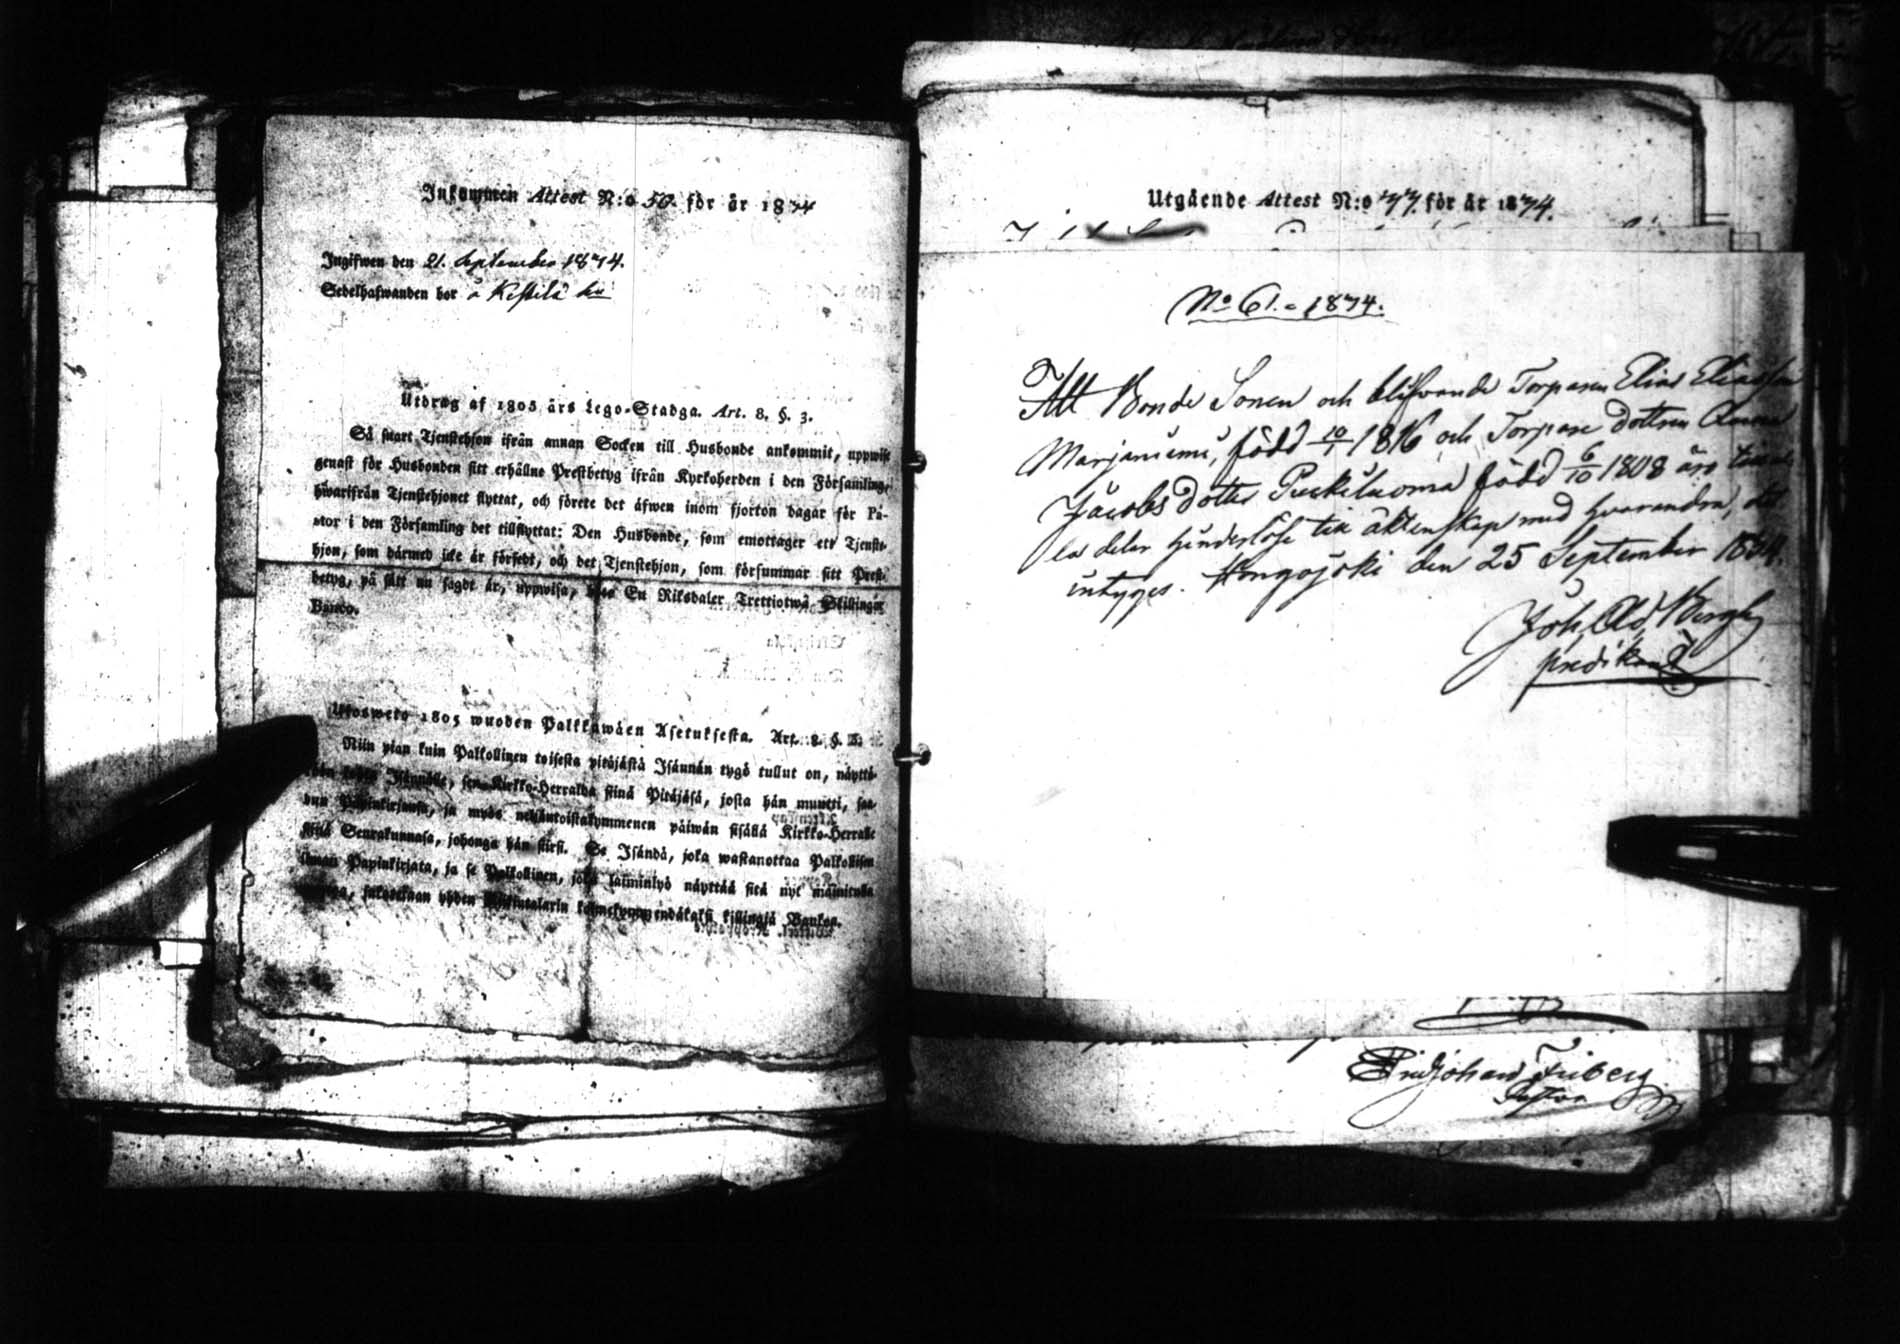 Inkommen Attest N:o 50. för år 1874
Ingifwen den 21. September 1874.
Sedelhafwanden bor å Kestilä
Utdrag af 1805 års Lego-Stadga. Art. 8. §. 3.
Så snart Tjenstehjon ifrån annan Socken till Husbonde ankommit, uppwise
genast för Husbonden sitt erhållne Prestbetyg ifrån Kyrkoherden i den Församling,
hwarifrån Tjenstehjonet flyttat, och förete det äfwen inom fjorton dagar för Pa-
stor i den Församling det tillflyttat: Den Husbonde, som emottager ett Tjenste-
hjon, som härmed icke är försedt, och det Tjenstehjon, som försummar sitt Prest-
betyg, på sätt nu sagdt är, uppwisa, böte En Riksdaler Trettiotwå Skillingar
Banco.
Ulosweto 1805 wuoden Palkkawäen Asetuksesta. Art. 8. §. 3.
Niin pian kuin Palkollinen toisesta pitäjästä Isännän tygö tullut on, näyttä-
Isännälle, sen Kirkko-Herralda siinä Pitäjäsä, josta hän muutti, saa-
dun Papinkirjansa, ja myös neljäntoistakymmenen päiwän sisällä Kirkko-Herralle
siinä Seurakunnasa, johonga hän siirsi. Se Isändä, joka wastanottaa Palkollisen
ilman Papinkirjata, ja se Palkollinen, joka laiminlyö näyttää sitä nyt mainitulla
sakotetaan yhden Riikintalarin kolmekymmendäkaksi killingiä Bankoa.
Utgående Attest N:o 77. för år 1874.
No 61. - 1874.
Att Bonde Sonen och blifvande Torparen Elias Eliasson
Marjaniemi, född 10/1 1816 och Torpare dottren Anna
Jacobs dotter Puskiluoma född 6/10 1808 äro till al-
la delar hinderlöse till äktenskap med hvarandra, det
intyges. Hongojoki den 25 September 1874.
Joh, Ad, Bergh
predikant
Fridjohan Friberg
Pastor